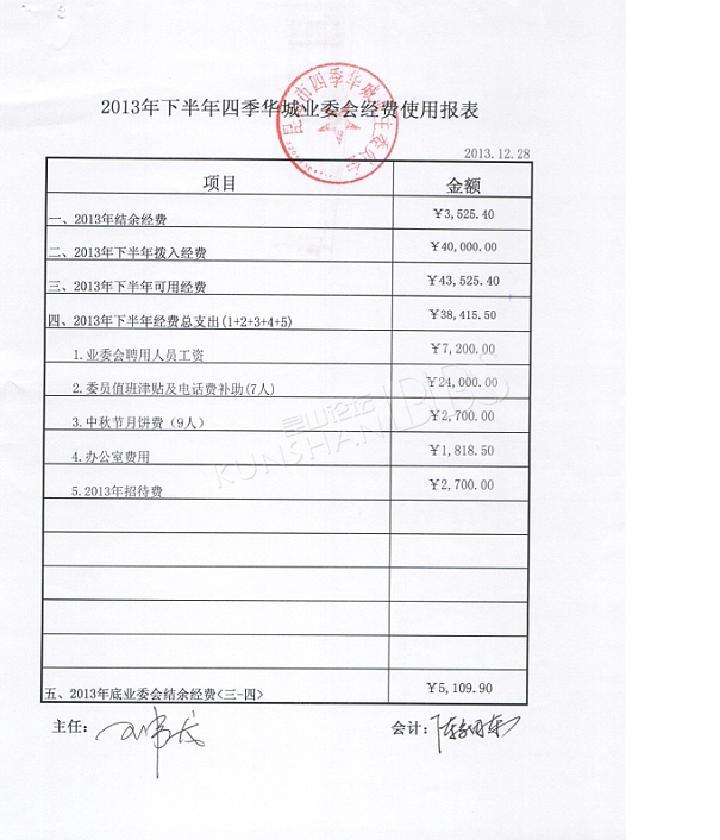 2013年下半年四季华城业委会经费使用报表
2013.12.28
项目 金额
一、2013年结余经费 ￥3,525.40
二、2013年下半年拨入经费 ￥40,000.00
三、2013年下半年可用经费 ￥43,525.40
四、2013年下半年经费总支出(1+2+3+4+5) ￥38,415.50
1.业委会聘用人员工资 ￥7,200.00
2.委员值班津贴及电话费补助(7人) ￥24,000.00
3.中秋节月饼费（9人） ￥2,700.00
4.办公室费用 ￥1,818.50
5.2013年招待费 ￥2,700.00
五、2013年底业委会结余经费<三-四> ￥5,109.90
主任:
会计:
昆山论坛
KUNSHAN BBS